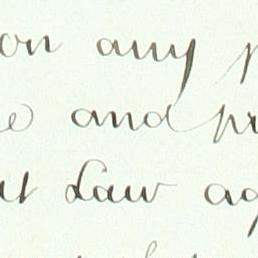 on any
and pr
at Law ag